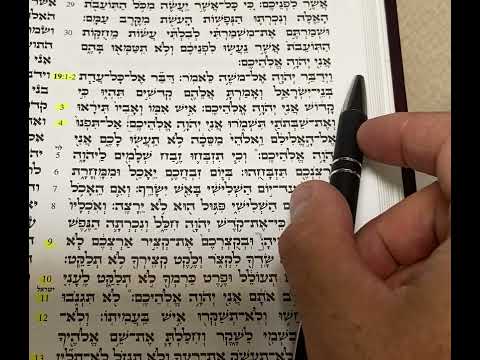 29 אֲשֶׁר לִפְנֵיכֶם׃ כִּי כׇּל־אֲשֶׁר יַעֲשֶׂה מִכֹּל הַתּוֹעֵבֹת
הָאֵלֶּה וְנִכְרְתוּ הַנְּפָשׁוֹת הָעֹשֹׂת מִקֶּרֶב עַמָּם׃
וּשְׁמַרְתֶּם אֶת־מִשְׁמַרְתִּי לְבִלְתִּי עֲשׂוֹת מֵחֻקּוֹת
הַתּוֹעֵבֹת אֲשֶׁר נַעֲשׂוּ לִפְנֵיכֶם וְלֹא תִטַּמְּאוּ בָּהֶם
אֲנִי יְהֹוָה אֱלֹהֵיכֶם׃
19:1-2 וַיְדַבֵּר יְהֹוָה אֶל־מֹשֶׁה לֵּאמֹר׃ דַּבֵּר אֶל־כׇּל־עֲדַת
בְּנֵי־יִשְׂרָאֵל וְאָמַרְתָּ אֲלֵהֶם קְדֹשִׁים תִּהְיוּ כִּי
3 קָדוֹשׁ אֲנִי יְהֹוָה אֱלֹהֵיכֶם׃ אִישׁ אִמּוֹ וְאָבִיו תִּירָאוּ
4 וְאֶת־שַׁבְּתֹתַי תִּשְׁמֹרוּ אֲנִי יְהֹוָה אֱלֹהֵיכֶם׃ אַל־תִּפְנוּ
אֶל־הָאֱלִילִם וֵאלֹהֵי מַסֵּכָה לֹא תַעֲשׂוּ לָכֶם אֲנִי
לוי
5 יְהֹוָה אֱלֹהֵיכֶם׃ וְכִי תִזְבְּחוּ זֶבַח שְׁלָמִים לַיהֹוָה
6 לִרְצֹנְכֶם תִּזְבָּחֻהוּ׃ בְּיוֹם זִבְחֲכֶם יֵאָכֵל וּמִמׇּחֳרָת
7 עַד־יוֹם הַשְּׁלִישִׁי בָּאֵשׁ יִשָּׂרֵף׃ וְאִם הֵאָכֹל
8 הַשְּׁלִישִׁי פִּגּוּל הוּא לֹא יֵרָצֶה׃ וְאֹכְלָיו
כִּי־אֶת־קֹדֶשׁ יְהֹוָה חִלֵּל וְנִכְרְתָה הַנֶּפֶשׁ
9 וּבְקֻצְרְכֶם אֶת־קְצִיר אַרְצְכֶם לֹא
שָׂדְךָ לִקְצֹר וְלֶקֶט קְצִירְךָ לֹא תְלַקֵּט׃
10 תְעוֹלֵל וּפֶרֶט כַּרְמְךָ לֹא תְלַקֵּט לֶעָנִי
ישראל
11 אֹתָם אֲנִי יְהֹוָה אֱלֹהֵיכֶם׃ לֹא תִּגְנֹבוּ
12 וְלֹא־תְשַׁקְּרוּ אִישׁ בַּעֲמִיתוֹ׃ וְלֹא־
בִשְׁמִי לַשָּׁקֶר וְחִלַּלְתָּ אֶת־שֵׁם אֱלֹהֶיךָ
13 אֶת־רֵעֲךָ וְלֹא תִגְזֹל לֹא־תָלִין